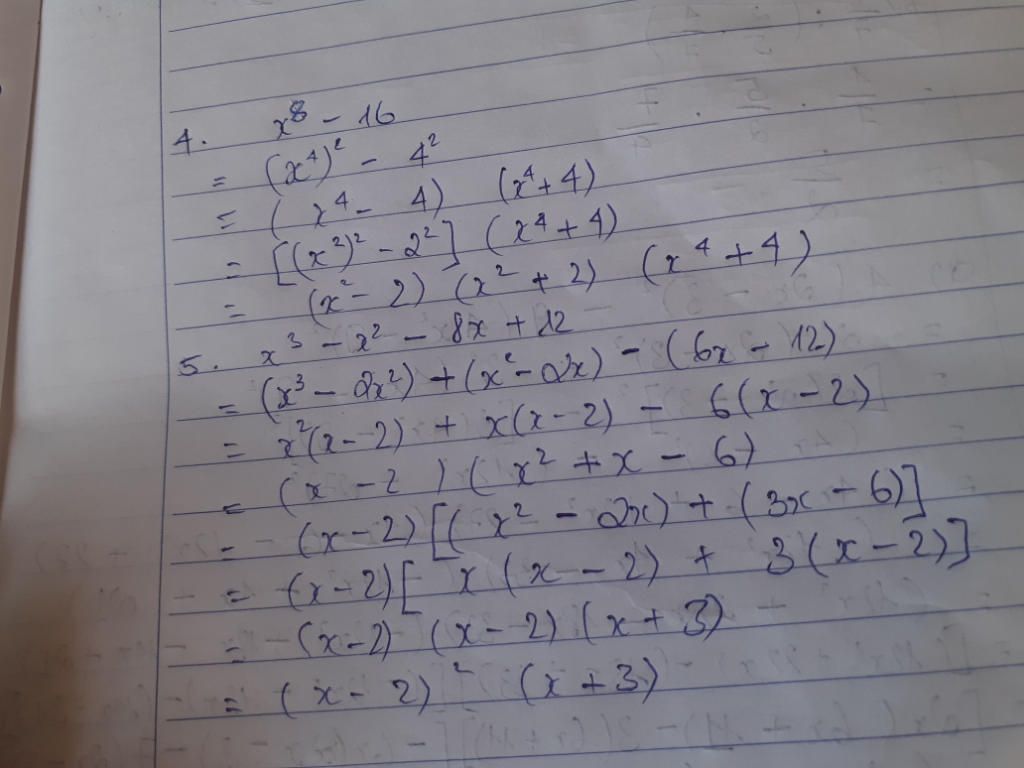 4. x⁸ - 16
= (x⁴)² - 4²
= (x⁴ - 4) (x⁴ + 4)
= [(x²)² - 2²] (x⁴ + 4)
= (x² - 2) (x² + 2) (x⁴ + 4)
5. x³ - x² - 8x + 12
= (x³ - 2x²) + (x² - 2x) - (6x - 12)
= x²(x - 2) + x(x - 2) - 6(x - 2)
= (x - 2) (x² + x - 6)
= (x - 2) [(x² - 2x) + (3x - 6)]
= (x - 2) [x (x - 2) + 3(x - 2)]
= (x - 2) (x - 2) (x + 3)
= (x - 2)² (x + 3)